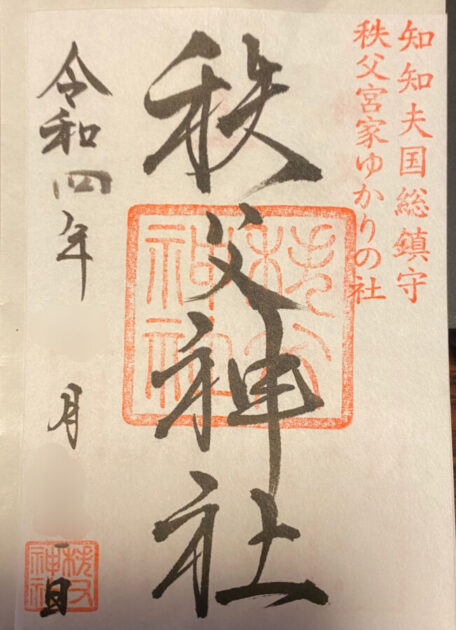 知知夫国総鎮守
秩父宮家ゆかりの社
秩父神社
秩父神社
令和四年
月
日
秩父神社